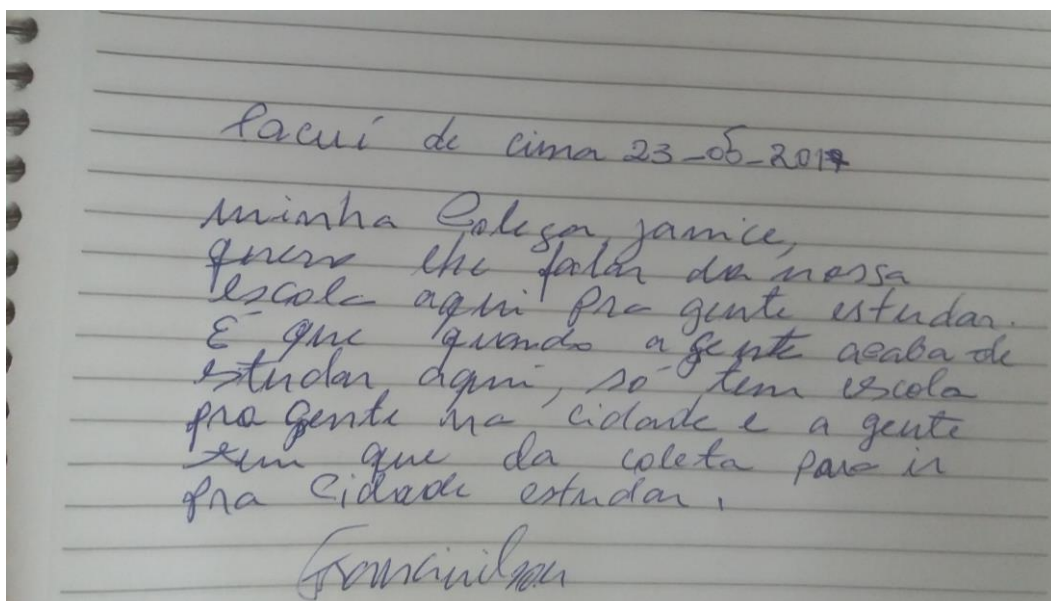 Pacuí de cima 23-05-2017
minha Colega, janice,
quero lhe falar da nossa
escola aqui pra gente estudar.
É que quando a gente acaba de
estudar aqui, só tem escola
pra gente na cidade e a gente
tem que da coleta para ir
pra Cidade estudar.
Francinilson